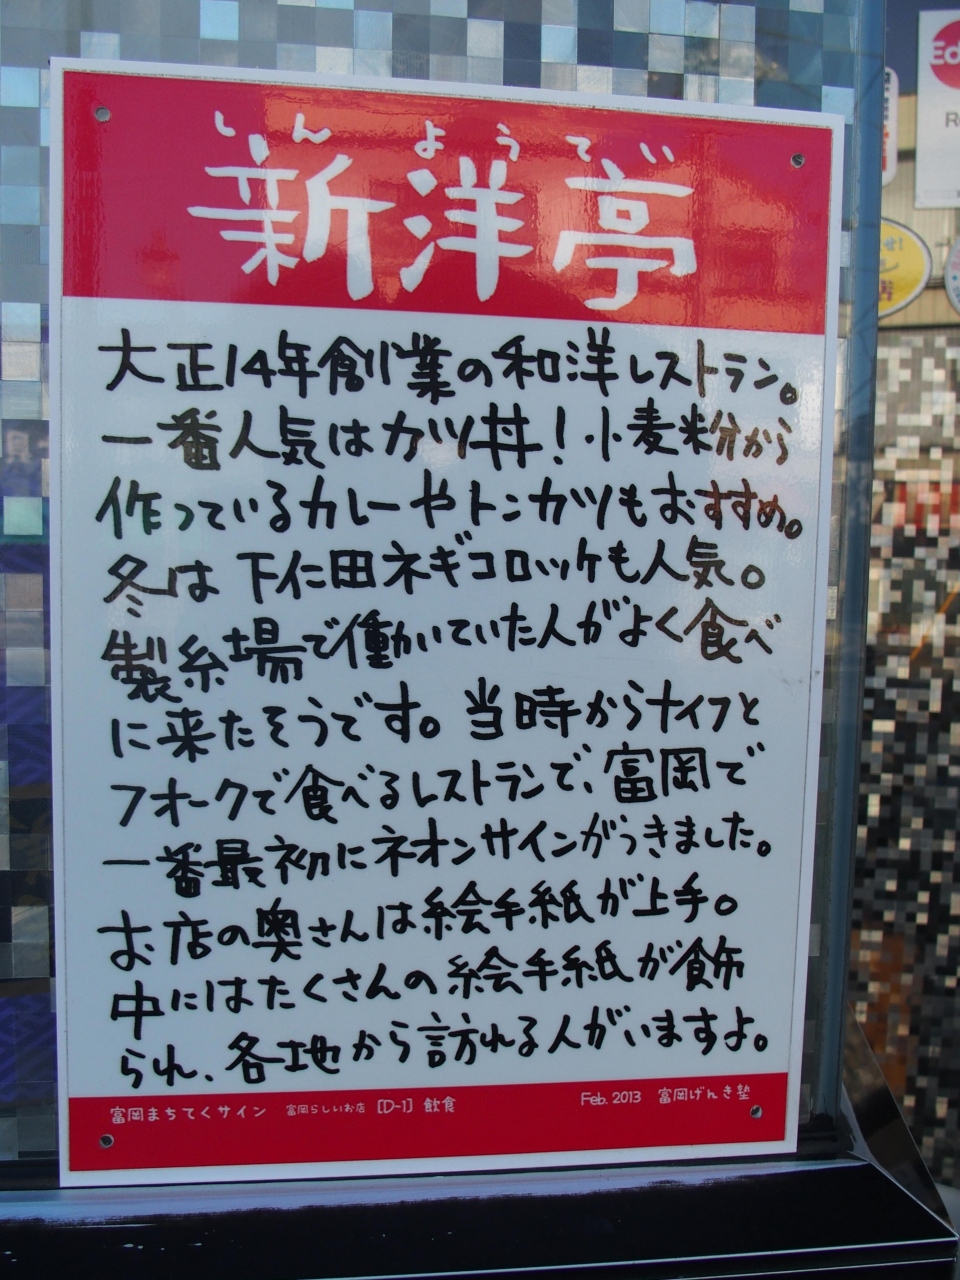 しんようてい
新洋亭
大正14年創業の和洋レストラン。
一番人気はカツ丼！小麦粉から
作っているカレーやトンカツもおすすめ。
冬は下仁田ネギコロッケも人気。
製糸場で働いていた人がよく食べ
に来たそうです。当時からナイフと
フォークで食べるレストランで、富岡で
一番最初にネオンサインがつきました。
お店の奥さんは絵手紙が上手。
中にはたくさんの絵手紙が飾
られ、各地から訪れる人がいますよ。
富岡まちてくサイン 富岡らしいお店 [D-1] 飲食 Feb. 2013 富岡げんき塾
Ed